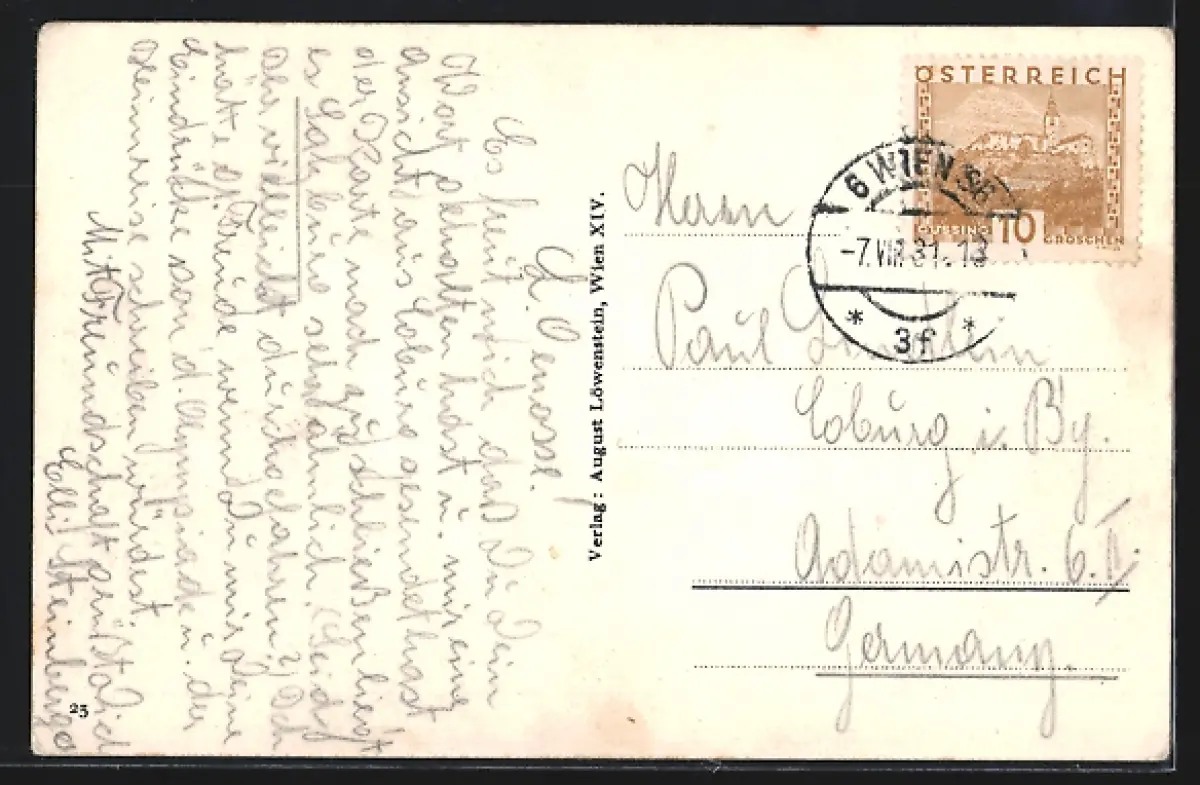 L. Genosse!
Es freut mich daß Du Dein
Wort gehalten hast u. mir eine
Ansicht aus Coburg gesendet hast
der Karte nach zu schließen liegt
es Salzburg sehr ähnlich. (Seid
Ihr vielleicht durchgefahren?) Ich
hätte g. Freude wenn Du mir Deine
Eindrücke von d. Olympiade u. der
Heimreise schreiben würdest.
Mit Freundschaft grüßt Dich
Elli Steinberg
25
Verlag: August Löwenstein, Wien XIV.
ÖSTERREICH
GÜSSING 10 GROSCHEN
6 WIEN
-7.VIII.31.13
* 3f *
Herrn
Paul
Coburg i. By.
Adamistr. 6. I.
Germany.